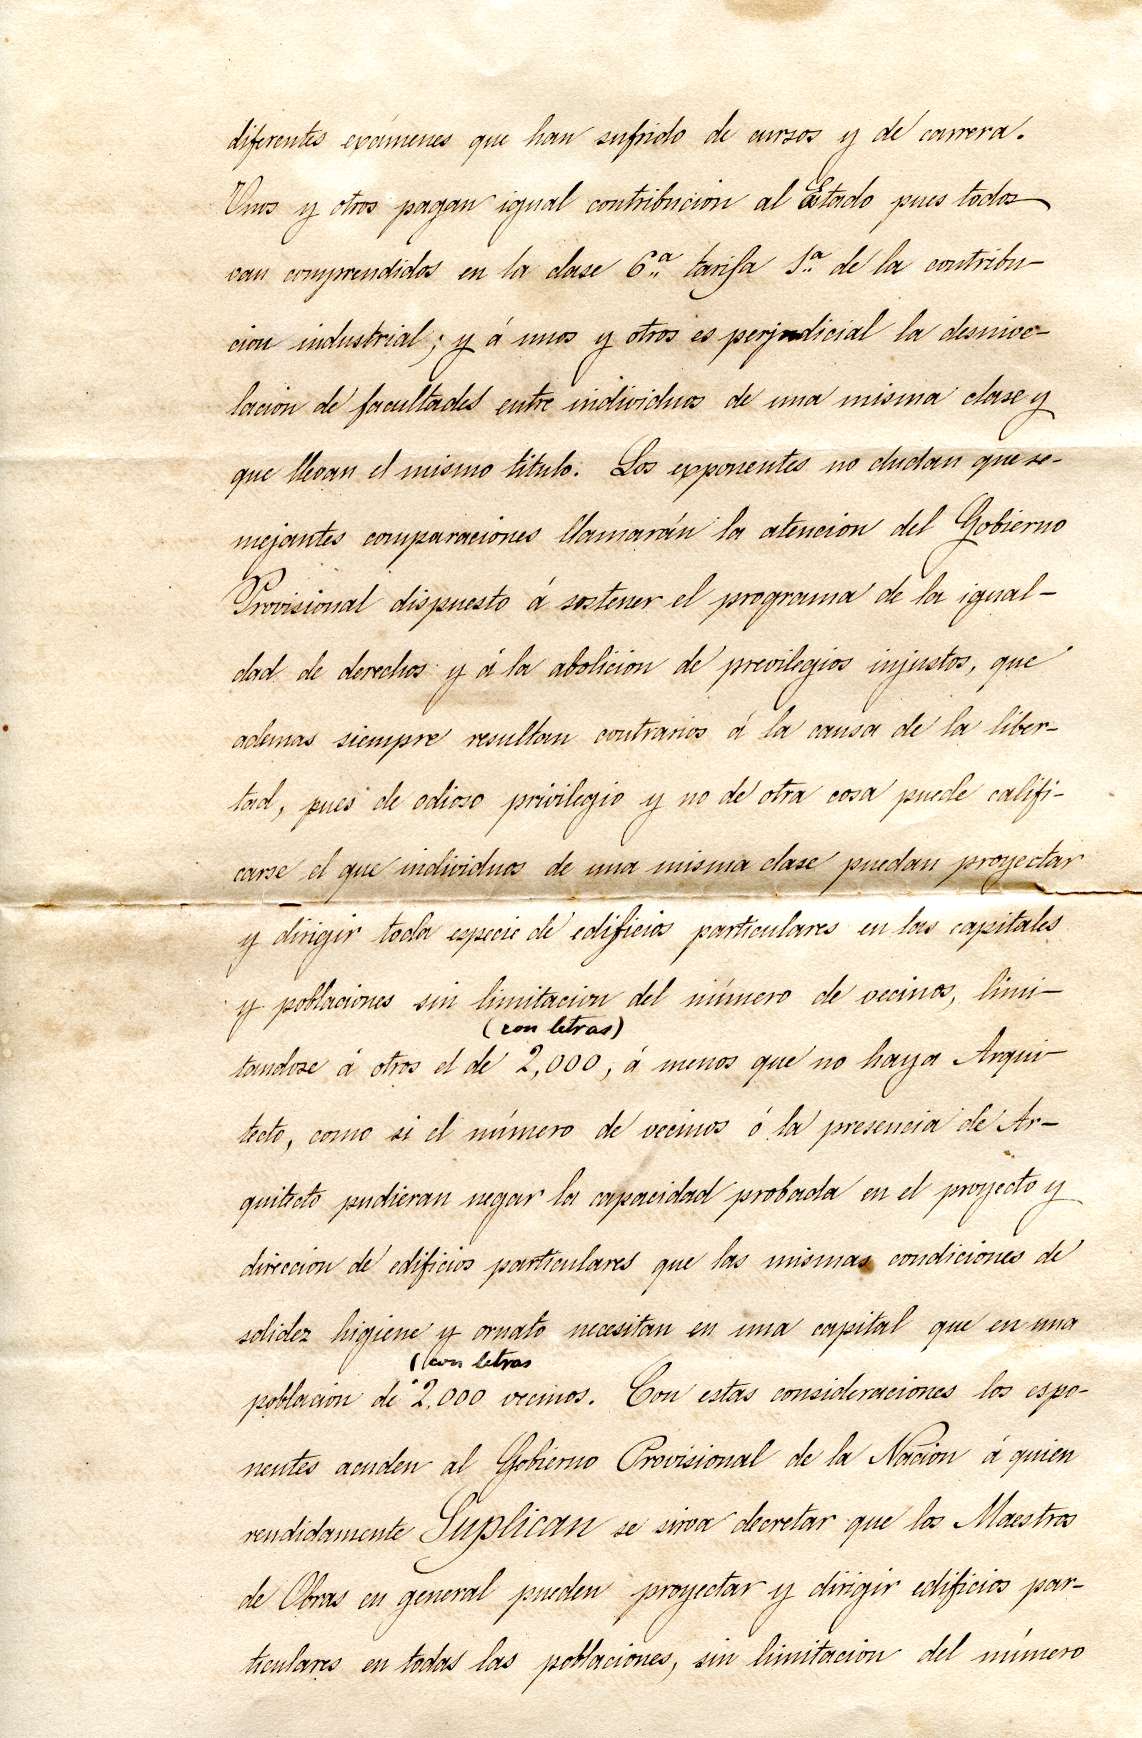 diferentes exámenes que han sufrido de cursos y de carrera.
Unos y otros pagan igual contribucion al Estado pues todos
van comprendidos en la clase 6.ª tarifa 1.ª de la contribu-
cion industrial; y á unos y otros es perjudicial la desnive-
lacion de facultades entre individuos de una misma clase y
que llevan el mismo titulo. Los exponentes no dudan que se-
mejantes comparaciones llamarán la atencion del Gobierno
Provisional dispuesto á sostener el programa de la igual-
dad de derechos y á la abolicion de previlegios injustos, que
ademas siempre resultan contrarios á la causa de la liber-
tad, pues de odioso privilegio y no de otra cosa puede califi-
carse el que individuos de una misma clase puedan proyectar
y dirigir toda especie de edificios particulares en las capitales
y poblaciones sin limitacion del número de vecinos, limi-
(con letras)
tandose á otros el de 2,000, á menos que no haya Arqui-
tecto, como si el número de vecinos ó la presencia de Ar-
quitecto pudieran negar la capacidad probada en el proyecto y
direccion de edificios particulares que las mismas condiciones de
solidez higiene y ornato necesitan en una capital que en una
(con letras
poblacion de 2.000 vecinos. Con estas consideraciones los espo-
nentes acuden al Gobierno Provisional de la Nacion á quien
rendidamente Suplican se sirva decretar que los Maestros
de Obras en general pueden proyectar y dirigir edificios par-
ticulares en todas las poblaciones, sin limitacion del número